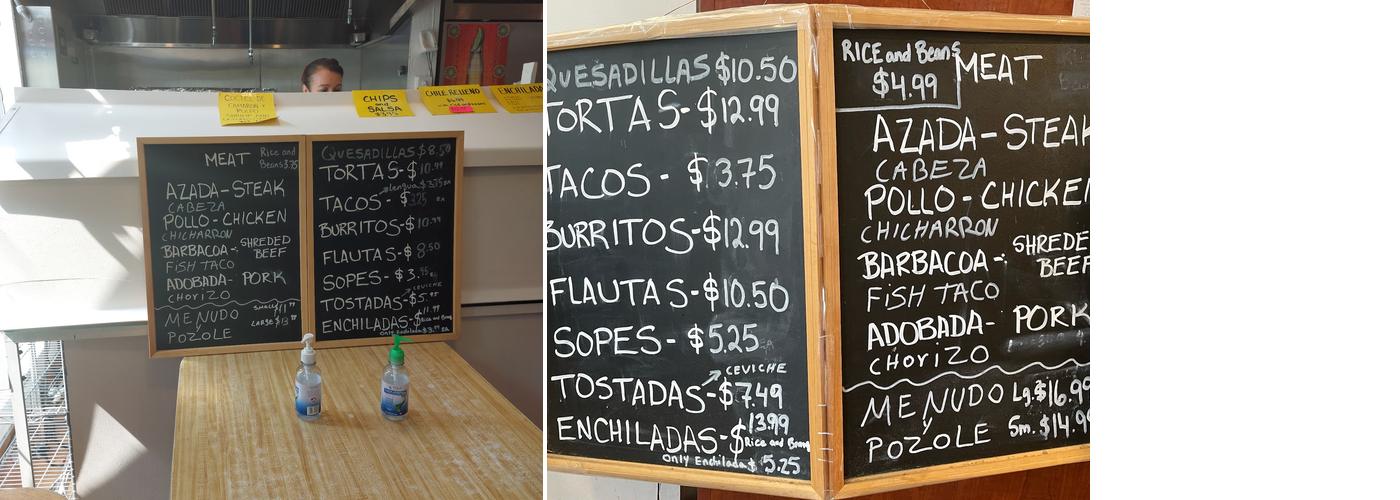 CHIPS
and
SALSA
CHILE RELLENO
ENCHILADA
MEAT Rice and
Beans 3.75
AZADA-STEAK
CABEZA
POLLO-CHICKEN
CHICHARRON
BARBACOA-: SHREDED
BEEF
FISH TACO
ADOBADA- PORK
CHORIZO
MENUDO
Y
POZOLE
QUESADILLAS $8.50
TORTAS-$10.99
Lengua $3.75 EA
TACOS-$3.25 EA
BURRITOS-$10.99
FLAUTAS-$8.50
SOPES-$3.
CEVICHE
TOSTADAS-$5.
11.99
ENCHILADAS-$Rice and Beans
Only Enchilada $3.
QUESADILLAS $10.50
TORTAS-$12.99
TACOS - $3.75
BURRITOS-$12.99
FLAUTAS-$10.50
SOPES- $5.25 EA
CEVICHE
TOSTADAS-$7.49
13.99
ENCHILADAS-$Rice and Beans
Only Enchilada $ 5.25
RICE and Beans
$4.99
MEAT
AZADA-STEAK
CABEZA
POLLO-CHICKEN
CHICHARRON
BARBACOA-: SHREDE
BEEF
FISH TACO
ADOBADA- PORK
CHORIZO
MENUDO Lg.$16.99
Y
POZOLE Sm.$14.99